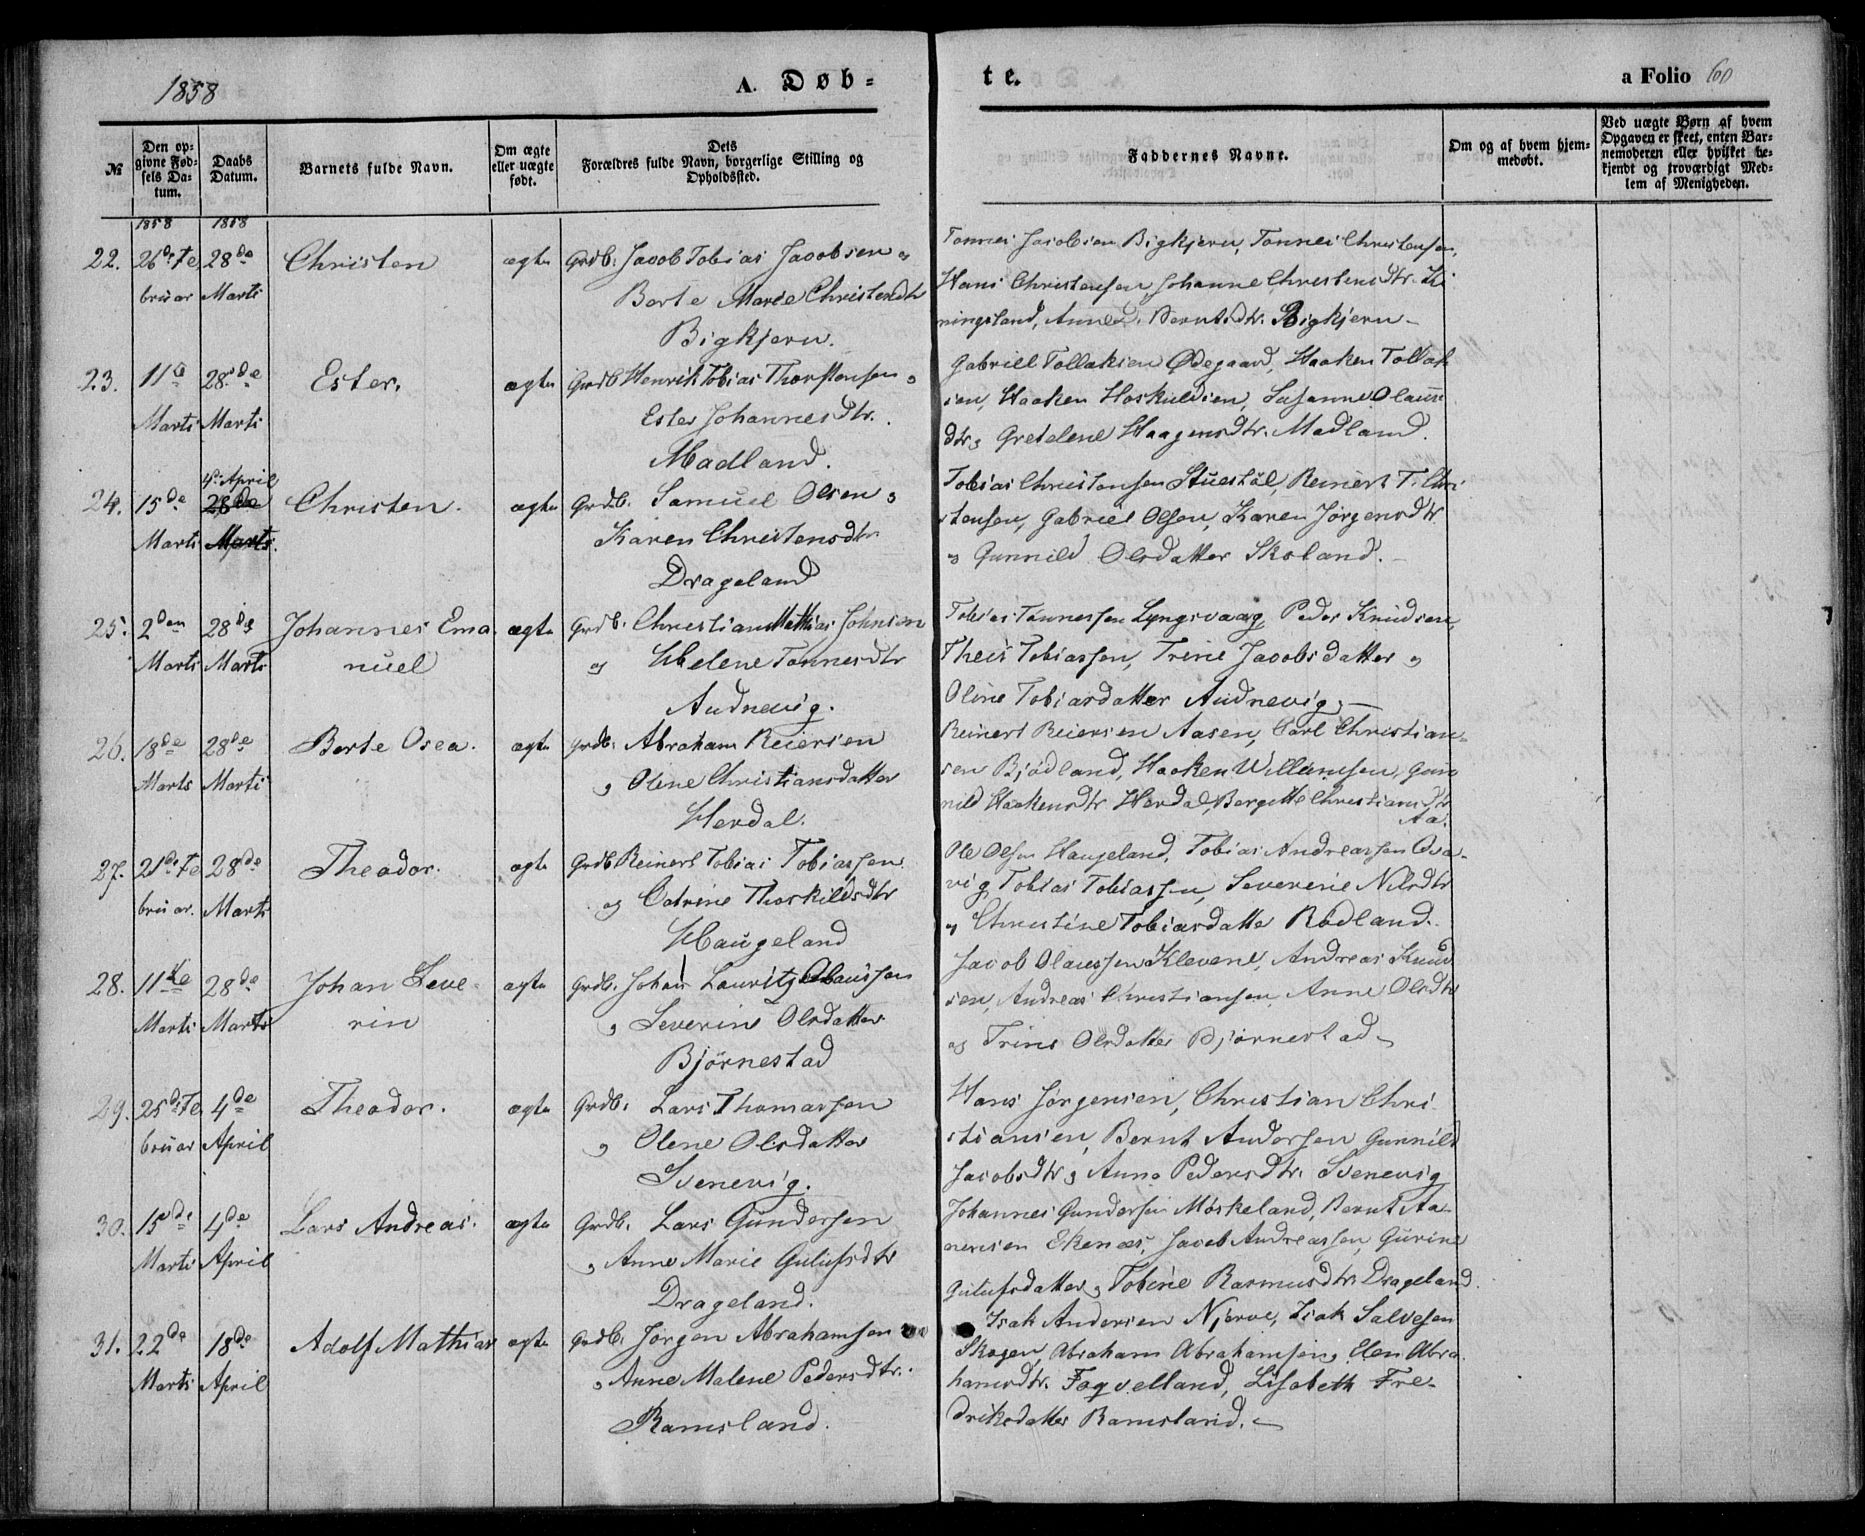 1858
A. Døb-
te.
a Folio 60
№
Den op-
givne Fød-
sels Da-
tum.
Daabs
Datum.
Barnets fulde Navn.
Om ægte
eller uægte
født.
Dets
Forældres fulde Navn, borgerlige Stilling og
Opholdssted.
Faddernes Navne.
Om og af hvem hjem-
medøbt.
Ved uægte Børn af hvem
Opgaven er skeet, enten Bar-
nemoderen eller hvilket be-
kjendt og troværdigt Med-
lem af Menigheden.
1858 1858
22. 26de Fe 28de Christen ægte Grdb. Jacob Tobias Jacobsen og
bruar Marts Berte Marie Christensdtr
Bigkjern.
Tønnes Jacobsen Bigkjern, Tønnes Christensen,
Hans Christensen, Johanne Christensdtr.
Anne Berntsdtr. Bigkjern
23. 11te 28de Ester. ægte Grdb Henrik Tobias Thorstensen og
Marts Marts Ester Johannesdtr.
Madland.
Gabriel Tollaksen Ødegaard, Haaken Tollak
sen, Haaken Hoskuldsen, Susanne Olaus
dtr og Gretelene Haagensdtr. Madland.
4de April
24. 15de 28de Christen. ægte Grdb. Samuel Olsen og
Marts Marts. Karen Christensdtr.
Drageland
Tobias Christensen Stuestøl, Reinert T. Chri
stensen, Gabriel Olsen, Karen Jørgensdtr
og Gunnild Olsdatter Skoland.
25. 2den 28de Johannes Ema ægte Grdb. Christian Mathias Johnsen
Marts Marts nuel og Helene Tønnesdtr
Audnevig.
Tobias Tønnessen Lyngsvaag, Peder Knudsen,
Theis Tobiassen, Trine Jacobsdatter og
Oline Tobiasdatter Audnevig.
26. 18de 28de Berte Osea. ægte Grdb. Abraham Reiersen
Marts Marts og Olene Christiansdatter
Herdal.
Reinert Reiersen Aasen, Carl Christian-
sen Bjødland, Haaken Willumsen, Gun
nild Haakensdtr Herdal, Bergitte Christiansdtr
Aa.
27. 21de Fe 28de Theodor. ægte Grdb Reinert Tobias Tobiassen
bruar. Marts og Catrine Thorkildsdtr
Haugeland
Ole Olsen Haugeland, Tobias Andreassen Osa-
vig, Tobias Tobiassen, Severine Nilsdtr
og Christine Tobiasdatter Rødland.
28. 11te 28de Johan Seve- ægte Grdb. Johan Lauritz Olaussen
Marts Marts rin og Severine Olsdatter
Bjørnestad
Jacob Olaussen Klevene, Andreas Knud
sen, Andreas Christiansen, Anne Olsdtr
og Trine Olsdatter Bjørnestad
29. 25de Fe 4de Theodor. ægte Grdb. Lars Thomassen
bruar April og Olene Olsdatter
Svenevig.
Hans Jørgensen, Christian Chri
stiansen, Bernt Andersen, Gunnild
Jacobsdtr og Anne Pedersdtr. Svenevig
30. 15de 4de Lars Andreas. ægte Grdb. Lars Gundersen
Marts April og Anne Marie Gulufsdtr
Drageland.
Johannes Gundersen Møskeland, Bernt Aa-
nensen Ekenæs, Jacob Andreassen, Gurine
Gulufsdatter og Tobine Rasmusdtr. Drageland.
31. 22de 18de Adolf Mathias ægte Grdb. Jørgen Abrahamsen
Marts April og Anne Malene Pedersdtr.
Ramsland.
Isak Andersen Njerve, Isak Salvesen
Skogen, Abraham Abrahamsen, Elen Abra
hamsdtr. Fogvelland, Lisabeth Fre-
driksdatter Ramsland.